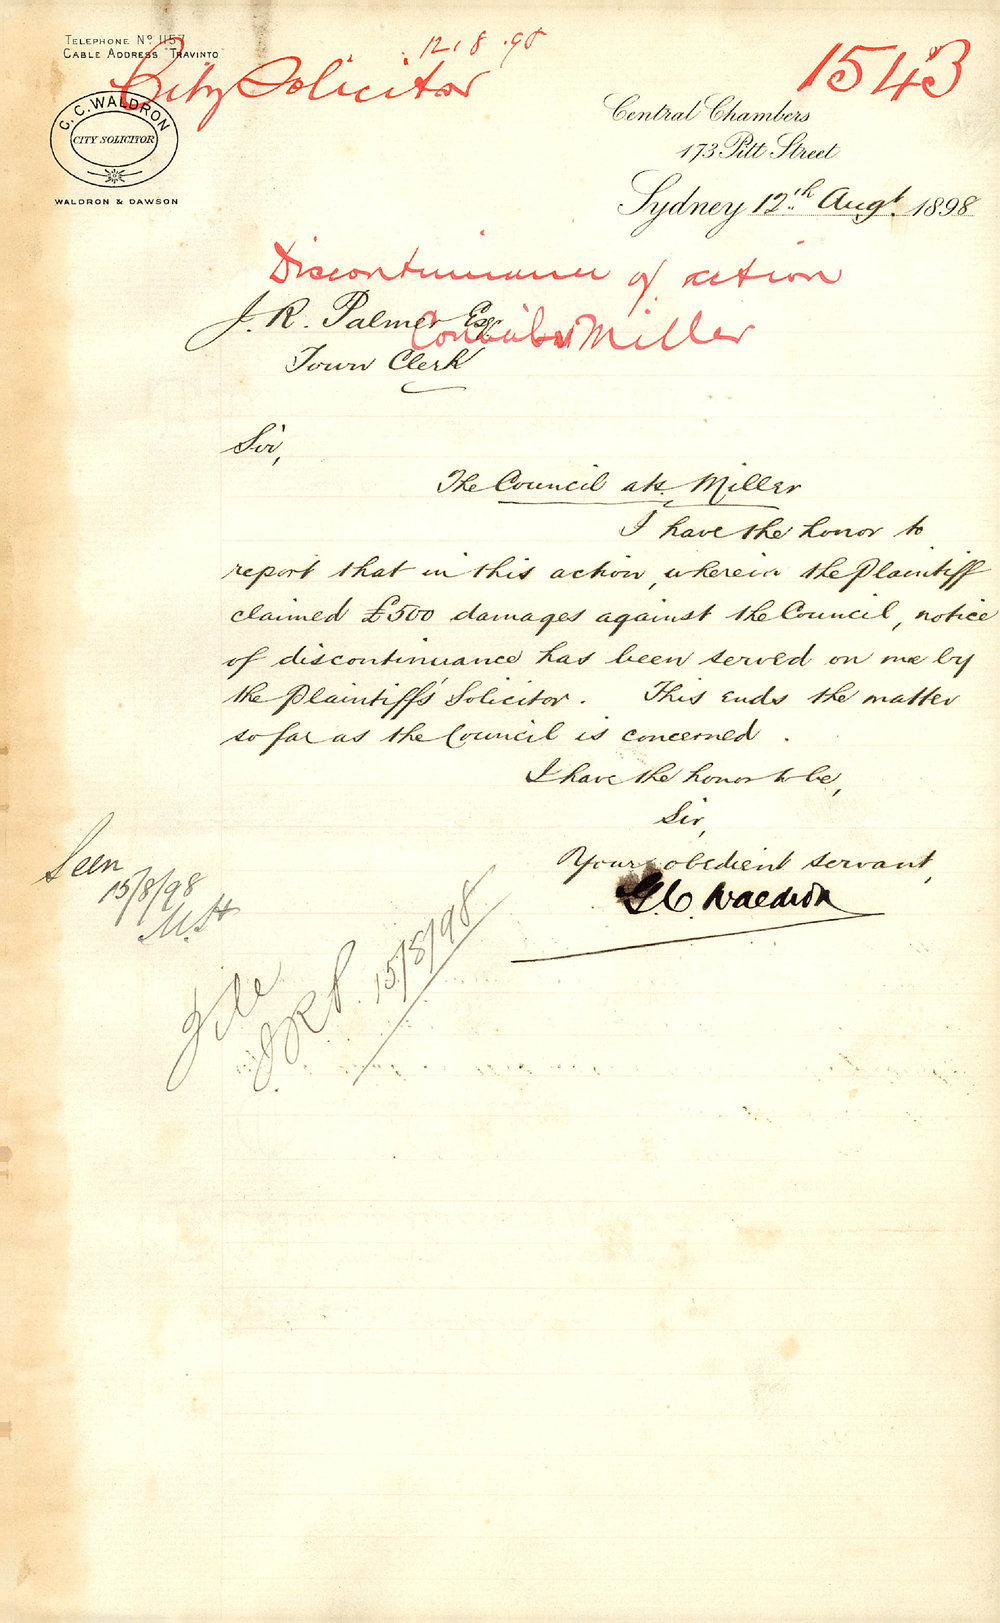 TELEPHONE No 1157
CABLE ADDRESS "TRAVINTO"
12.8.98
City Solicitor
1543
C. C. WALDRON
CITY SOLICITOR
WALDRON & DAWSON
Central Chambers
173 Pitt Street
Sydney 12th Augt 1898
Discontinuance of action
J. R. Palmer Esq
Miller
Town Clerk
Sir,
The Council ats. Miller
I have the honor to
report that in this action, wherein the Plaintiff
claimed £500 damages against the Council, notice
of discontinuance has been served on me by
the Plaintiff's Solicitor. This ends the matter
so far as the Council is concerned.
I have the honor to be,
Sir,
Your obedient servant,
Waldron
Seen
15/8/98
File
JRP 15/8/98